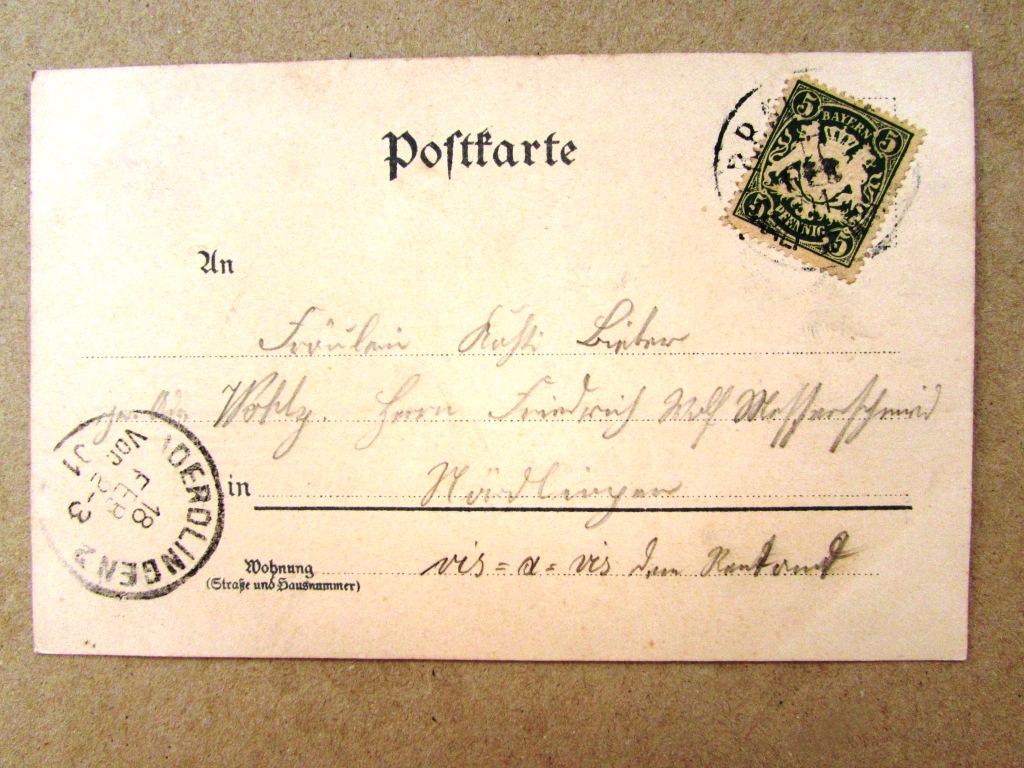 Postkarte
5 BAYERN 5
5 PFENNIG 5
An
Fräulein Käthi Bieber
Wohlg. Herrn Friedrich Wolf Messerschmied
in Nördlingen
Wohnung
(Straße und Hausnummer)
vis=a=vis dem Rentamt
NOERDLINGEN 2
18
FEB
Vor. 2-3
01